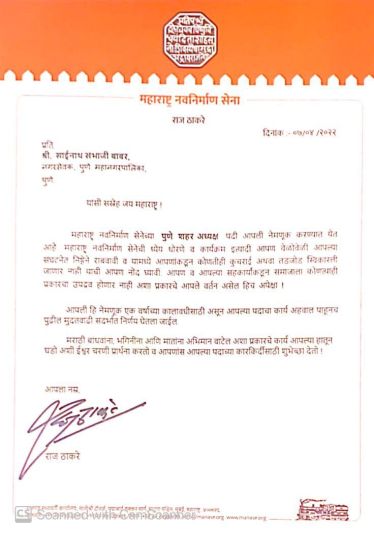 महाराष्ट्र नवनिर्माण सेना
राज ठाकरे
दिनांक :- ०७/०४ /२०२२
प्रति
श्री. साईनाथ संभाजी बाबर,
नगरसेवक, पुणे महानगरपालिका,
पुणे
यांसी सस्नेह जय महाराष्ट्र !
महाराष्ट्र नवनिर्माण सेनेच्या पुणे शहर अध्यक्ष पदी आपली नेमणूक करण्यात येत
आहे महाराष्ट्र नवनिर्माण सेनेची ध्येय धोरणे व कार्यक्रम इत्यादी आपण वेळोवेळी आपल्या
संघटनेत निष्ठेने राबवावी व यामध्ये आपणाकडून कोणतीही कुचराई अथवा तडजोड स्विकारली
जाणार नाही याची आपण नोंद घ्यावी. आपण व आपल्या सहकार्यांकडून समाजाला कोणताही
प्रकारचा उपद्रव होणार नाही अशा प्रकारचे आपले वर्तन असेल हिच अपेक्षा !
आपली हि नेमणूक एक वर्षाच्या कालावधीसाठी असून आपल्या पदाचा कार्य अहवाल पाहूनच
पुढील मुदतवाढी संदर्भात निर्णय घेतला जाईल
मराठी बांधवाना, भगिनींना आणि मातांना अभिमान वाटेल अशा प्रकारचे कार्य आपल्या हातून
घडो अशी ईश्वर चरणी प्रार्थना करतो व आपणांस आपल्या पदाच्या कारकिर्दीसाठी शुभेच्छा देतो !
आपला नम्र,
राज ठाकरे
CS Scanned with CamScanner